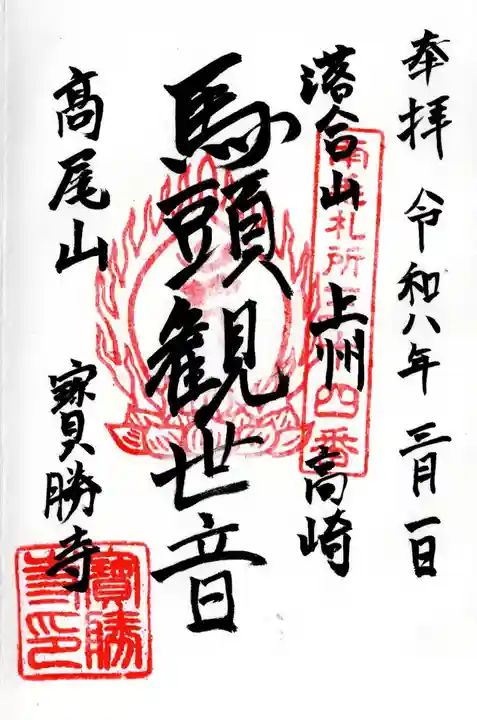 奉拝 令和八年 三月一日
落合山 上州 高崎
札所 四番
馬頭観世音
高尾山 寳勝寺
寳勝